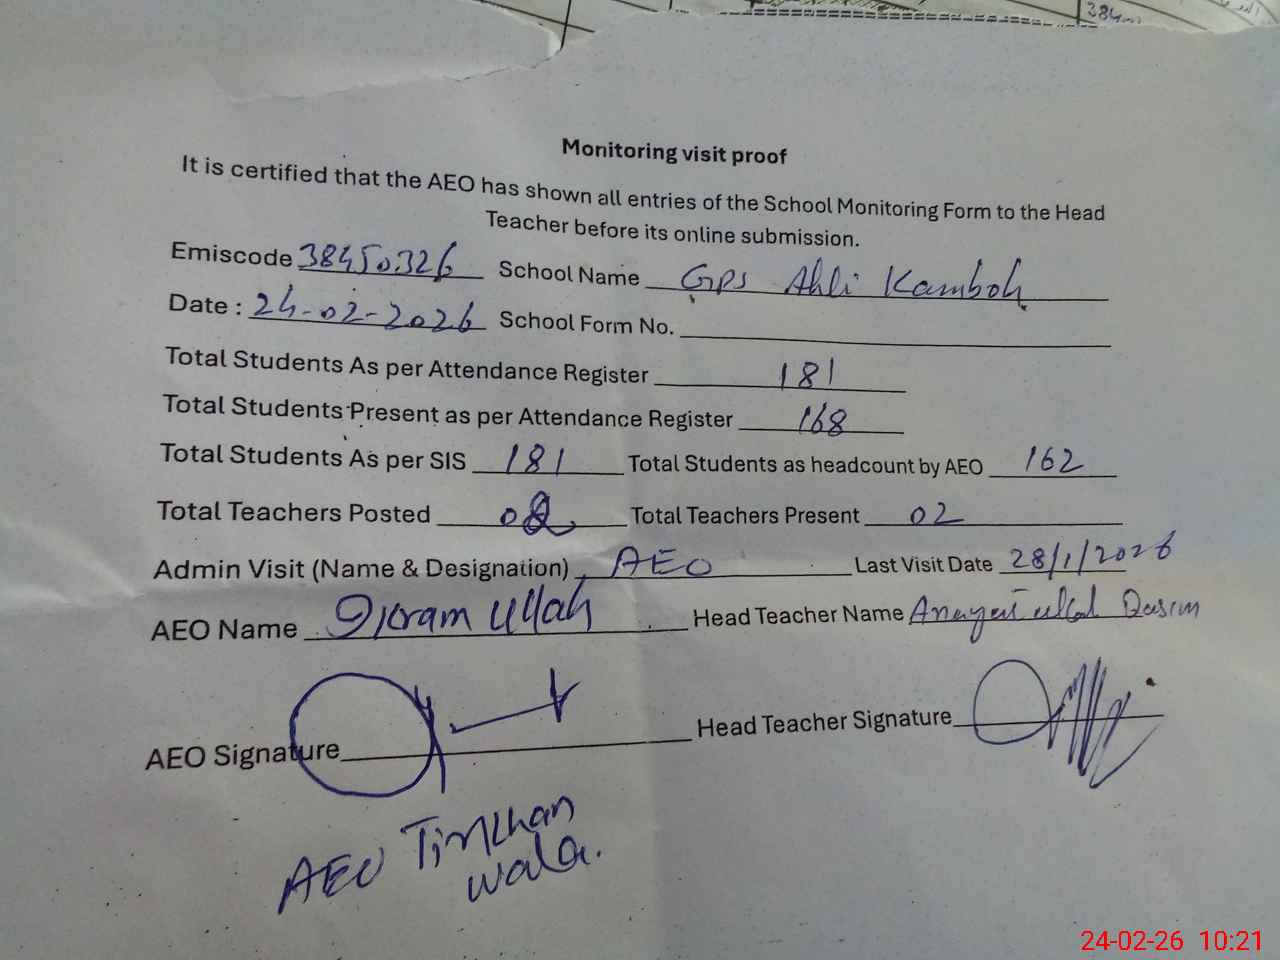 384
Monitoring visit proof
It is certified that the AEO has shown all entries of the School Monitoring Form to the Head
Teacher before its online submission.
Emiscode 38450326 School Name GPS Ahli Kamboh
Date : 24-02-2026 School Form No.
Total Students As per Attendance Register 181
Total Students Present as per Attendance Register 168
Total Students As per SIS 181 Total Students as headcount by AEO 162
Total Teachers Posted 02 Total Teachers Present 02
Admin Visit (Name & Designation) AEO Last Visit Date 28/1/2026
AEO Name Ikram Ullah Head Teacher Name Anayat ullah Qasim
AEO Signature Head Teacher Signature
AEO Tirkhan
wala.
24-02-26 10:21